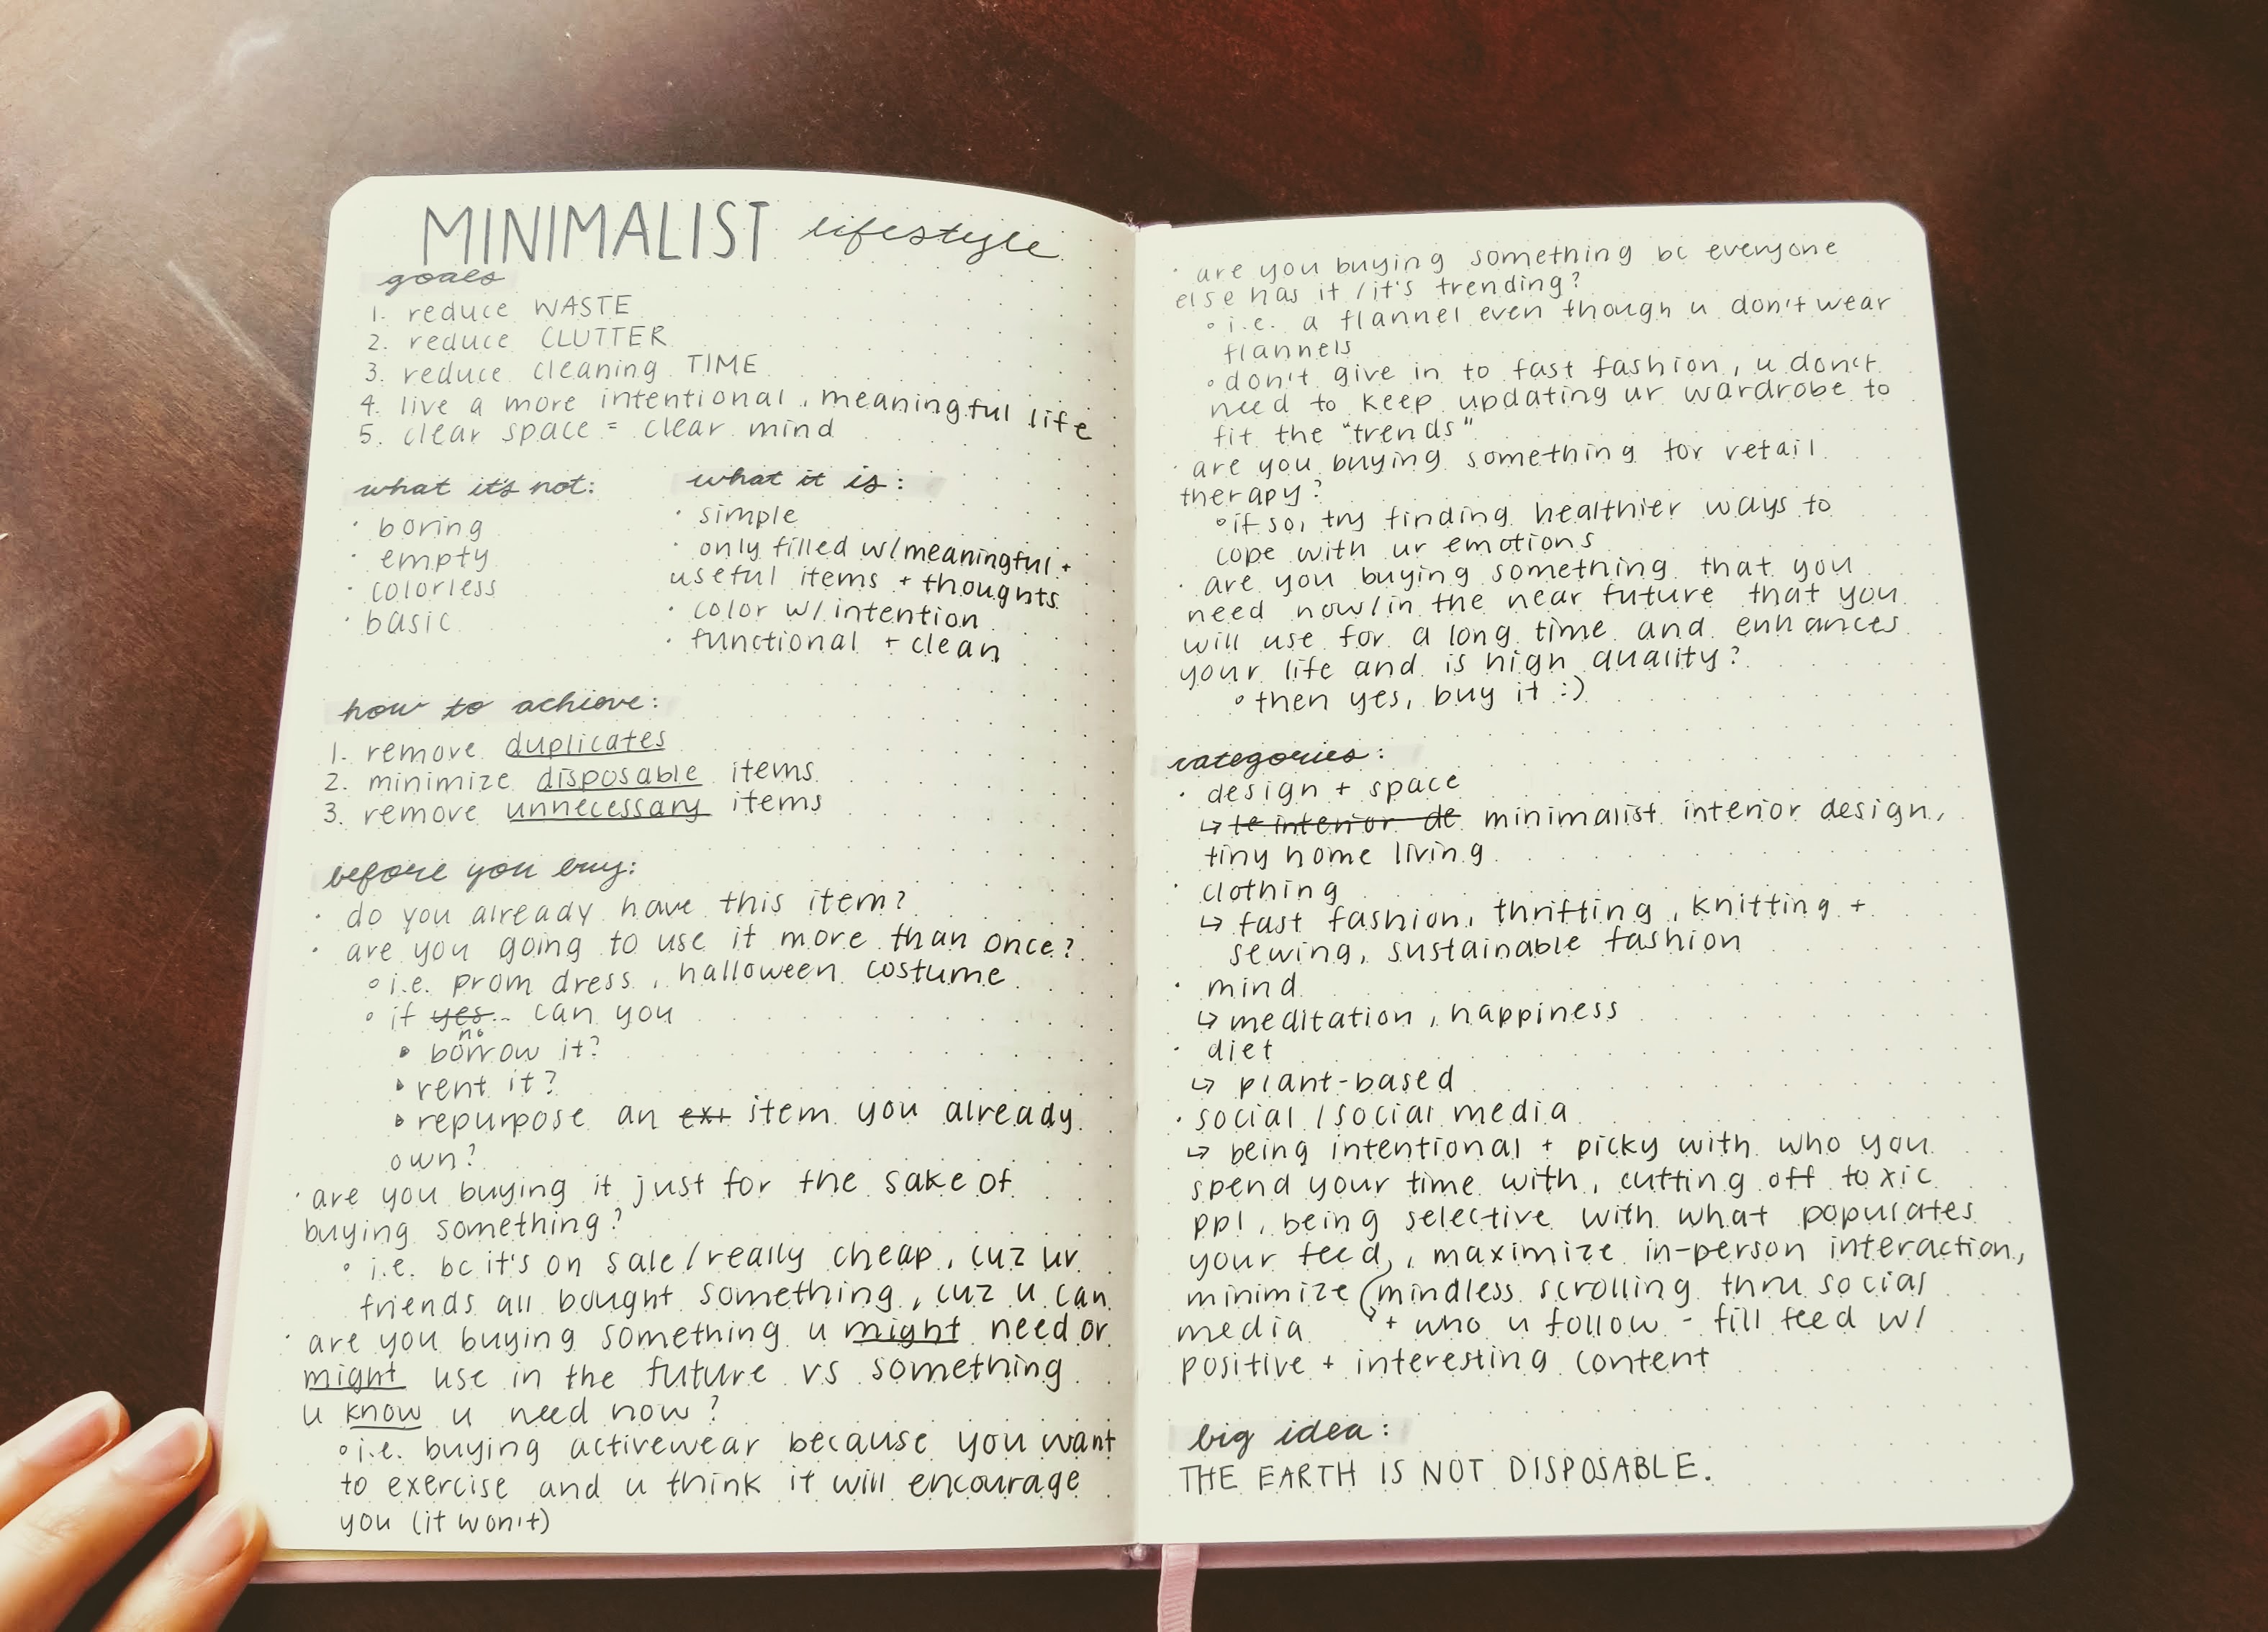 MINIMALIST lifestyle
goals
1. reduce WASTE
2. reduce CLUTTER
3. reduce cleaning TIME
4. live a more intentional, meaningful life
5. clear space = clear mind
what it's not:
· boring
· empty
· colorless
· basic
what it is:
· simple
· only filled w/meaningful +
useful items + thoughts
· color w/intention
· functional + clean
how to achieve:
1. remove duplicates
2. minimize disposable items
3. remove unnecessary items
before you buy:
· do you already have this item?
· are you going to use it more than once?
◦ i.e. prom dress, halloween costume
◦ if yes.. can you
no
• borrow it?
• rent it?
• repurpose an ext item you already
own?
· are you buying it just for the sake of
buying something?
◦ i.e. bc it's on sale/really cheap, cuz ur
friends all bought something, cuz u can
· are you buying something u might need or
might use in the future vs something
u know u need now?
◦ i.e. buying activewear because you want
to exercise and u think it will encourage
you (it won't)
· are you buying something bc everyone
else has it / it's trending?
◦ i.e. a flannel even though u don't wear
flannels
◦ don't give in to fast fashion, u don't
need to keep updating ur wardrobe to
fit the "trends"
· are you buying something for retail
therapy?
◦ if so, try finding healthier ways to
cope with ur emotions
· are you buying something that you
need now/in the near future that you
will use for a long time and enhances
your life and is high quality?
◦ then yes, buy it :)
categories:
· design + space
↳ te interior de minimalist interior design,
tiny home living
· clothing
↳ fast fashion, thrifting, knitting +
sewing, sustainable fashion
· mind
↳ meditation, happiness
· diet
↳ plant-based
· social / social media
↳ being intentional + picky with who you
spend your time with, cutting off toxic
ppl, being selective with what populates
your feed, maximize in-person interaction,
minimize mindless scrolling thru social
media + who u follow - fill feed w/
positive + interesting content
big idea:
THE EARTH IS NOT DISPOSABLE.